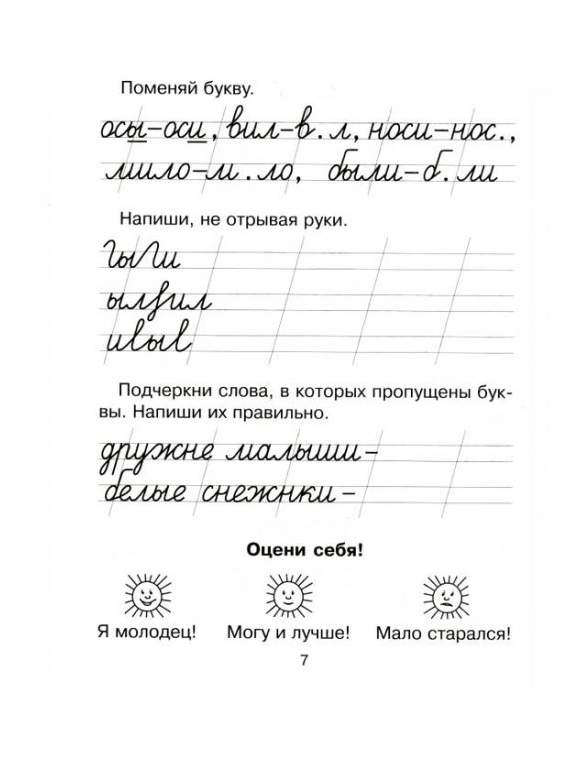 Поменяй букву.
осы–оси, вил–в.л, носи–нос.,
мило–м.ло, были–б.ли
Напиши, не отрывая руки.
ылзил
ивыв
Подчеркни слова, в которых пропущены бук-
вы. Напиши их правильно.
дружне малыши–
белые снежнки–
Оцени себя!
Я молодец! Могу и лучше! Мало старался!
7